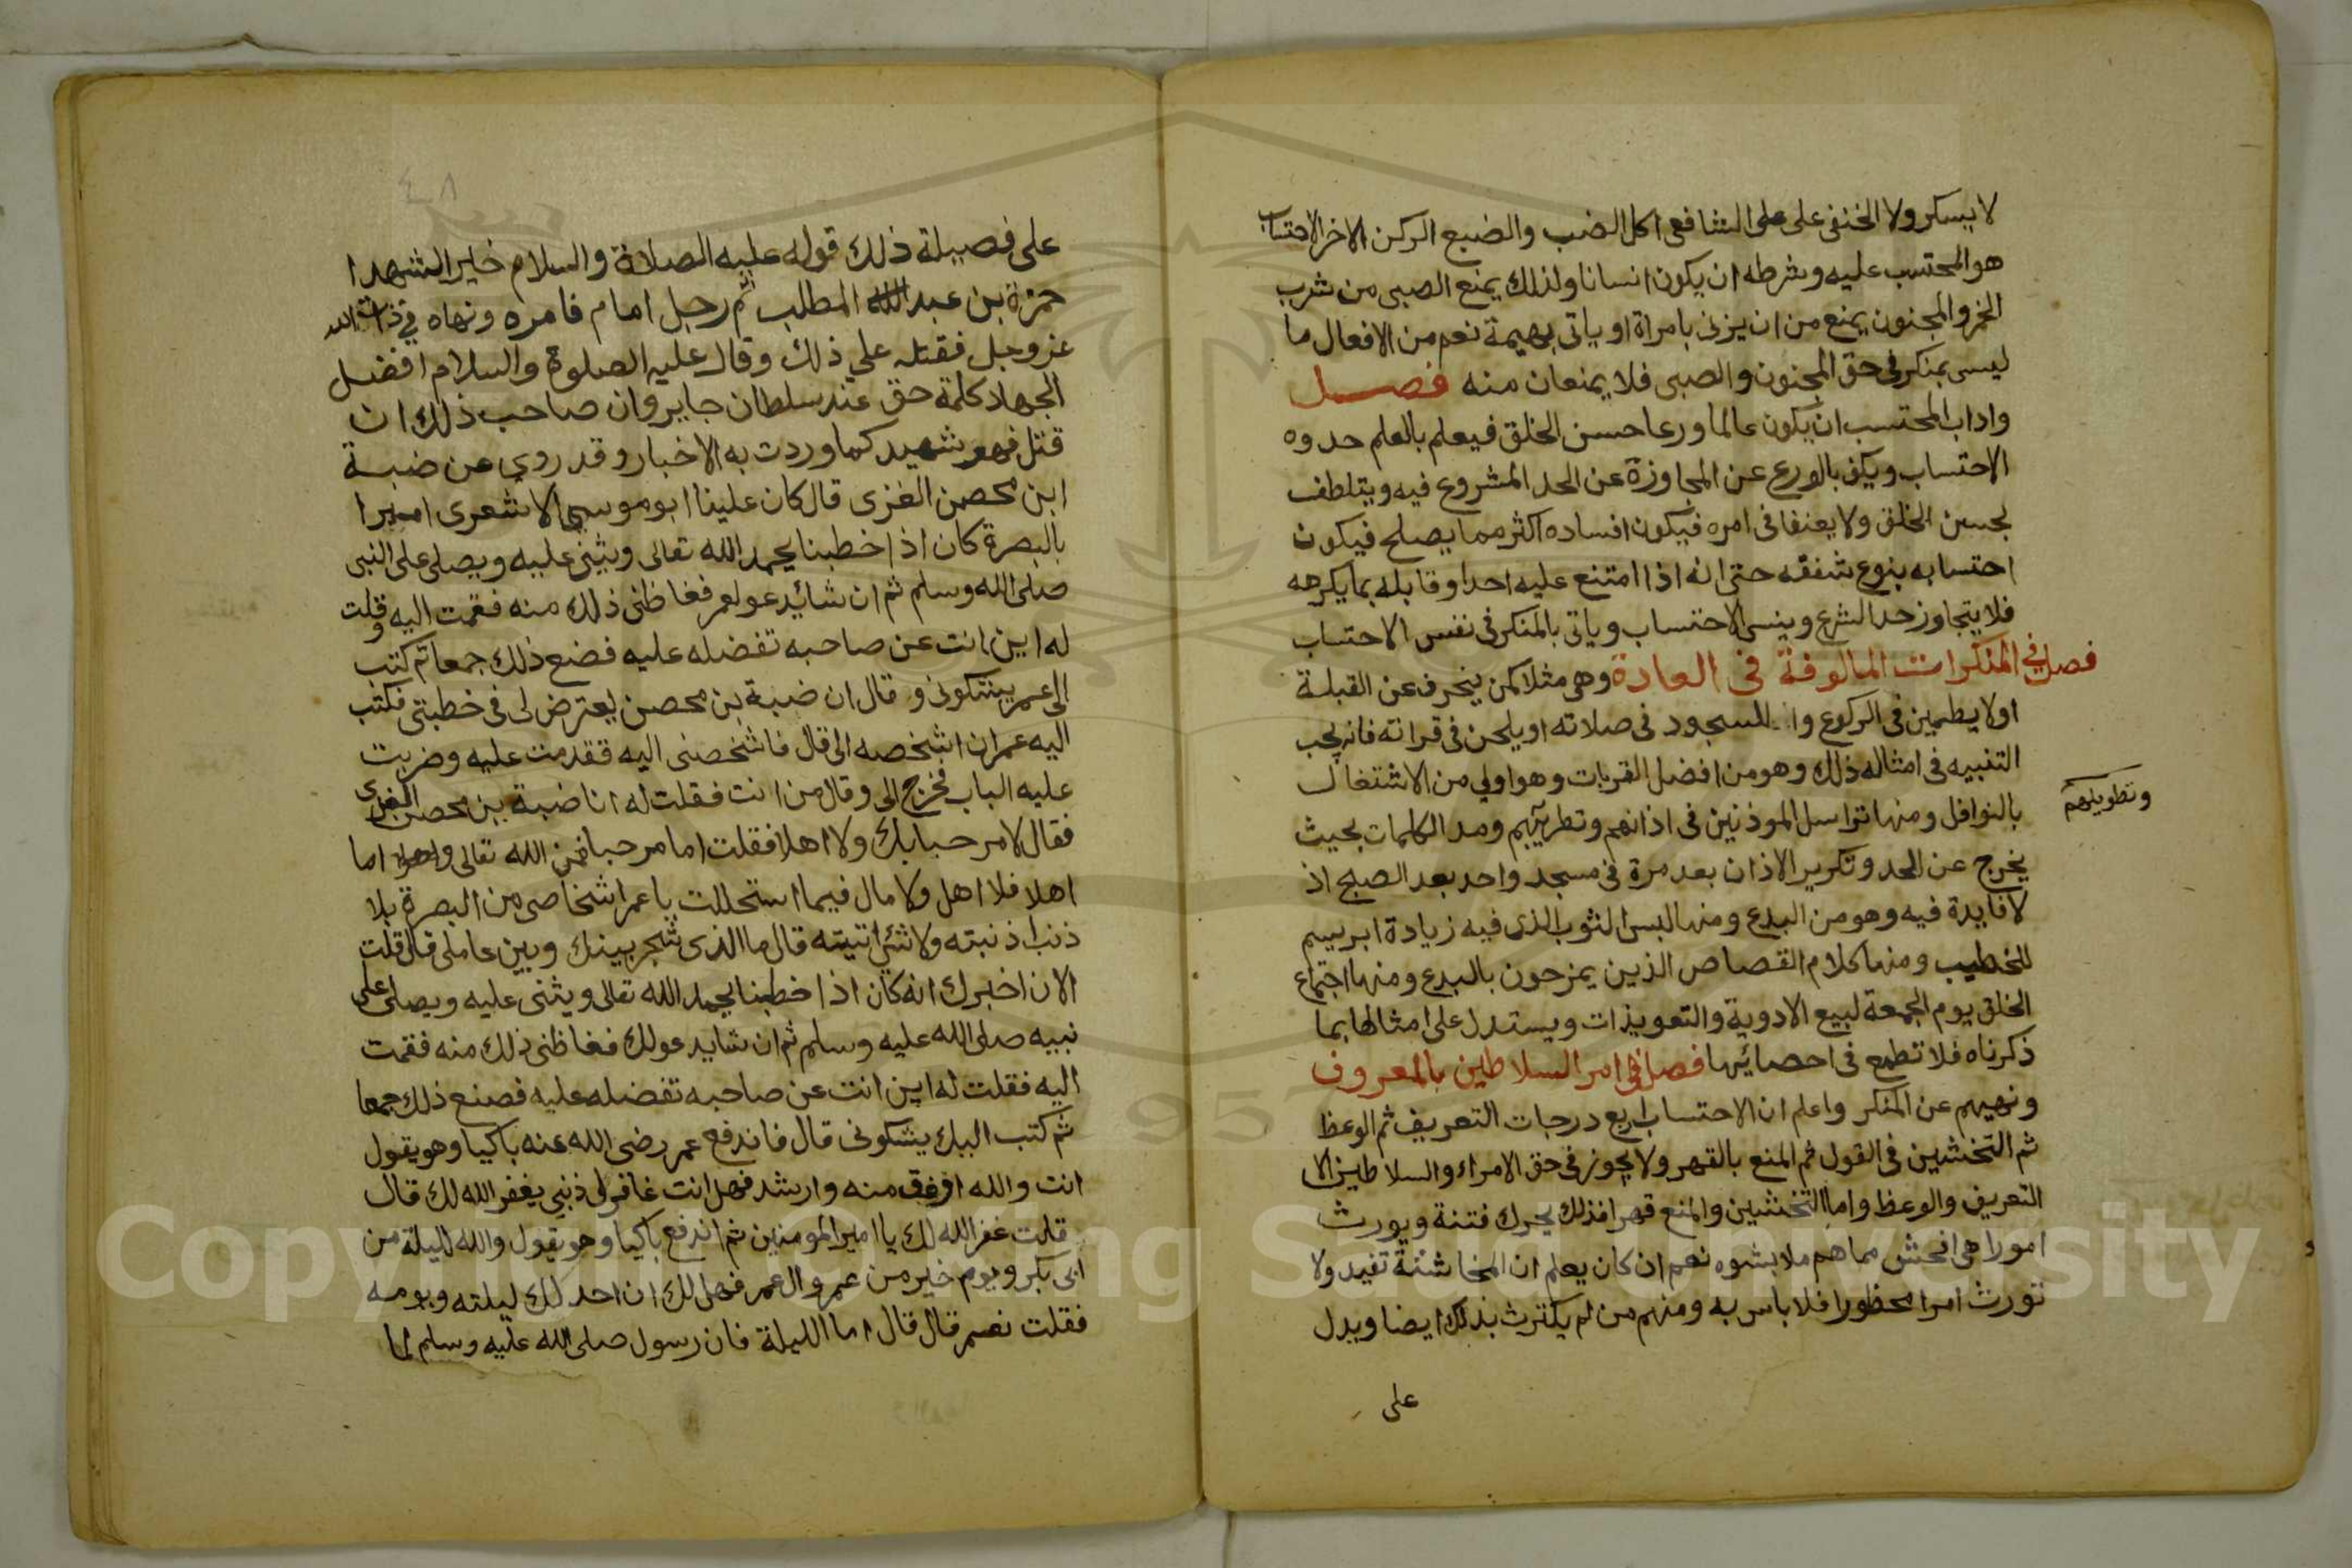 لا يسكر ولا الخنفى على على الشافعى اكل الضب والضبع الركن الاخر الاحتساب
هو المحتسب عليه وشرطه ان يكون انسانا ولذلك يمنع الصبى من شرب
الخمر والمجنون يمنع من ان يزنى بامراة او ياتى بهيمة نعم من الافعال ما
ليس بمنكر فى حق المجنون والصبى فلا يمنعان منه فصل
واداب المحتسب ان يكون عالما ورعا حسن الخلق فيعلم بالعلم حدوه
الاحتساب ويكف بالورع عن المجاوزة عن الحد المشروع فيه ويتلطف
بحسن الخلق ولا يعنفا فى امره فيكون افساده اكثر مما يصلح فيكون
احتسابه بنوع شفقه حتى انه اذا امتنع عليه احدا وقابله بما يكرهه
فلا يتجاوز حد الشرع وينسى الاحتساب وياتى بالمنكر فى نفس الاحتساب
فصل في المنكرات المالوفة فى العادة وهى مثلا كمن ينحرف عن القبلة
اولا يطمين فى الركوع وا للسجود فى صلاته او يلحن فى قراته فانه يجب
التنبيه فى امثاله ذلك وهو من افضل القربات وهو اولي من الاشتغال
بالنوافل ومنها تراسل الموذنين فى اذانهم وتطريبهم ومد الكلمات بحيث
وتطويلهم
يخرج عن الحد وتكرير الاذان بعد مرة فى مسجد واحد بعد الصبح اذ
لا فايدة فيه وهو من البدع ومنها لبس الثوب الذى فيه زيادة ابريسم
للخطيب ومنها كلام القصاص الذين يمزحون بالبدع ومنها اجتماع
الخلق يوم الجمعة لبيع الادوية والتعويذات ويستدل على امثالها بما
ذكرناه فلا تطمع فى احصائها فصل فى امر السلاطين بالمعروف
ونهيهم عن المنكر واعلم ان الاحتساب اربع درجات التعريف ثم الوعظ
ثم التخشين فى القول ثم المنع بالقهر ولا يجوز فى حق الامراء والسلاطين الا
التعريف والوعظ واما التخشين والمنع قهرا فذلك يحرك فتنة ويورث
امورا هى افحش مما هم ملابشوه نعم ان كان يعلم ان المخاشنة تفيد ولا
تورث امرا محظورا فلا باس به ومنهم من لم يكترث بذلك ايضا ويدل
على
٤٨
على فصيلة ذلك قوله عليه الصلاة والسلام خير الشهدا
حمزة بن عبد المطلب ثم رجل امام فامره ونهاه في ذات الله
عز وجل فقتله علي ذلك وقال عليه الصلوة والسلام افضل
الجهاد كلمة حق عند سلطان جاير وان صاحب ذلك ان
قتل فهو شهيد كما وردت به الاخبار وقد روى عن ضبة
ابن محصن الغزى قال كان علينا ابو موسي الاشعرى اميرا
بالبصرة كان اذا خطبنا يحمد الله تعالى ويثنى عليه ويصلى على النبى
صلى الله وسلم ثم ان شائيد عو لعمر فغاظنى ذلك منه فقمت اليه وقلت
له اين انت عن صاحبه تفضله عليه فضع ذلك جمعا ثم كتب
الى عمر يبنتكونى و قال ان ضبة بن محصن يعترض لى فى خطبتى فكتب
اليه عمر ان اشخصه الى قال فاشخصنى اليه فقدمت عليه وضربت
عليه الباب فخرج الى وقال من انت فقلت له انا ضبة بن محصن الغزى
فقال لا مرحبا بك ولا اهلا فقلت اما مرحبا فمن الله تعالى اما
اهلا فلا اهل ولا مال فيما استحللت يا عمر اشخاصى من البصرة بلا
ذنب اذنبته ولا شئ اتيته قال ما الذى شجر بينك وبين عاملى قال قلت
الان اخبرك انه كان اذا خطبنا يحمد الله تعالى ويثنى عليه ويصلى على
نبيه صلى الله عليه وسلم ثم ان شايد عولك فغاظنى ذلك منه فقمت
اليه فقلت له اين انت عن صاحبه تفضله عليه فصنع ذلك جمعا
ثم كتب اليك يشكونى قال فاندفع عمر رضى الله عنه باكيا وهو يقول
انت والله اوفق منه وارشد فهل انت غافر لى ذنبي يغفر الله لك قال
قلت غفر الله لك يا امير المومنين ثم اندفع باكيا وهو يقول والله لليلة من
ابى بكر ويوم خير من عمر وال عمر فهل لك ان احد لك ليلته ويومه
فقلت نعم قال قال اما الليلة فان رسول صلى الله عليه وسلم لما
Copyright © King Saud University